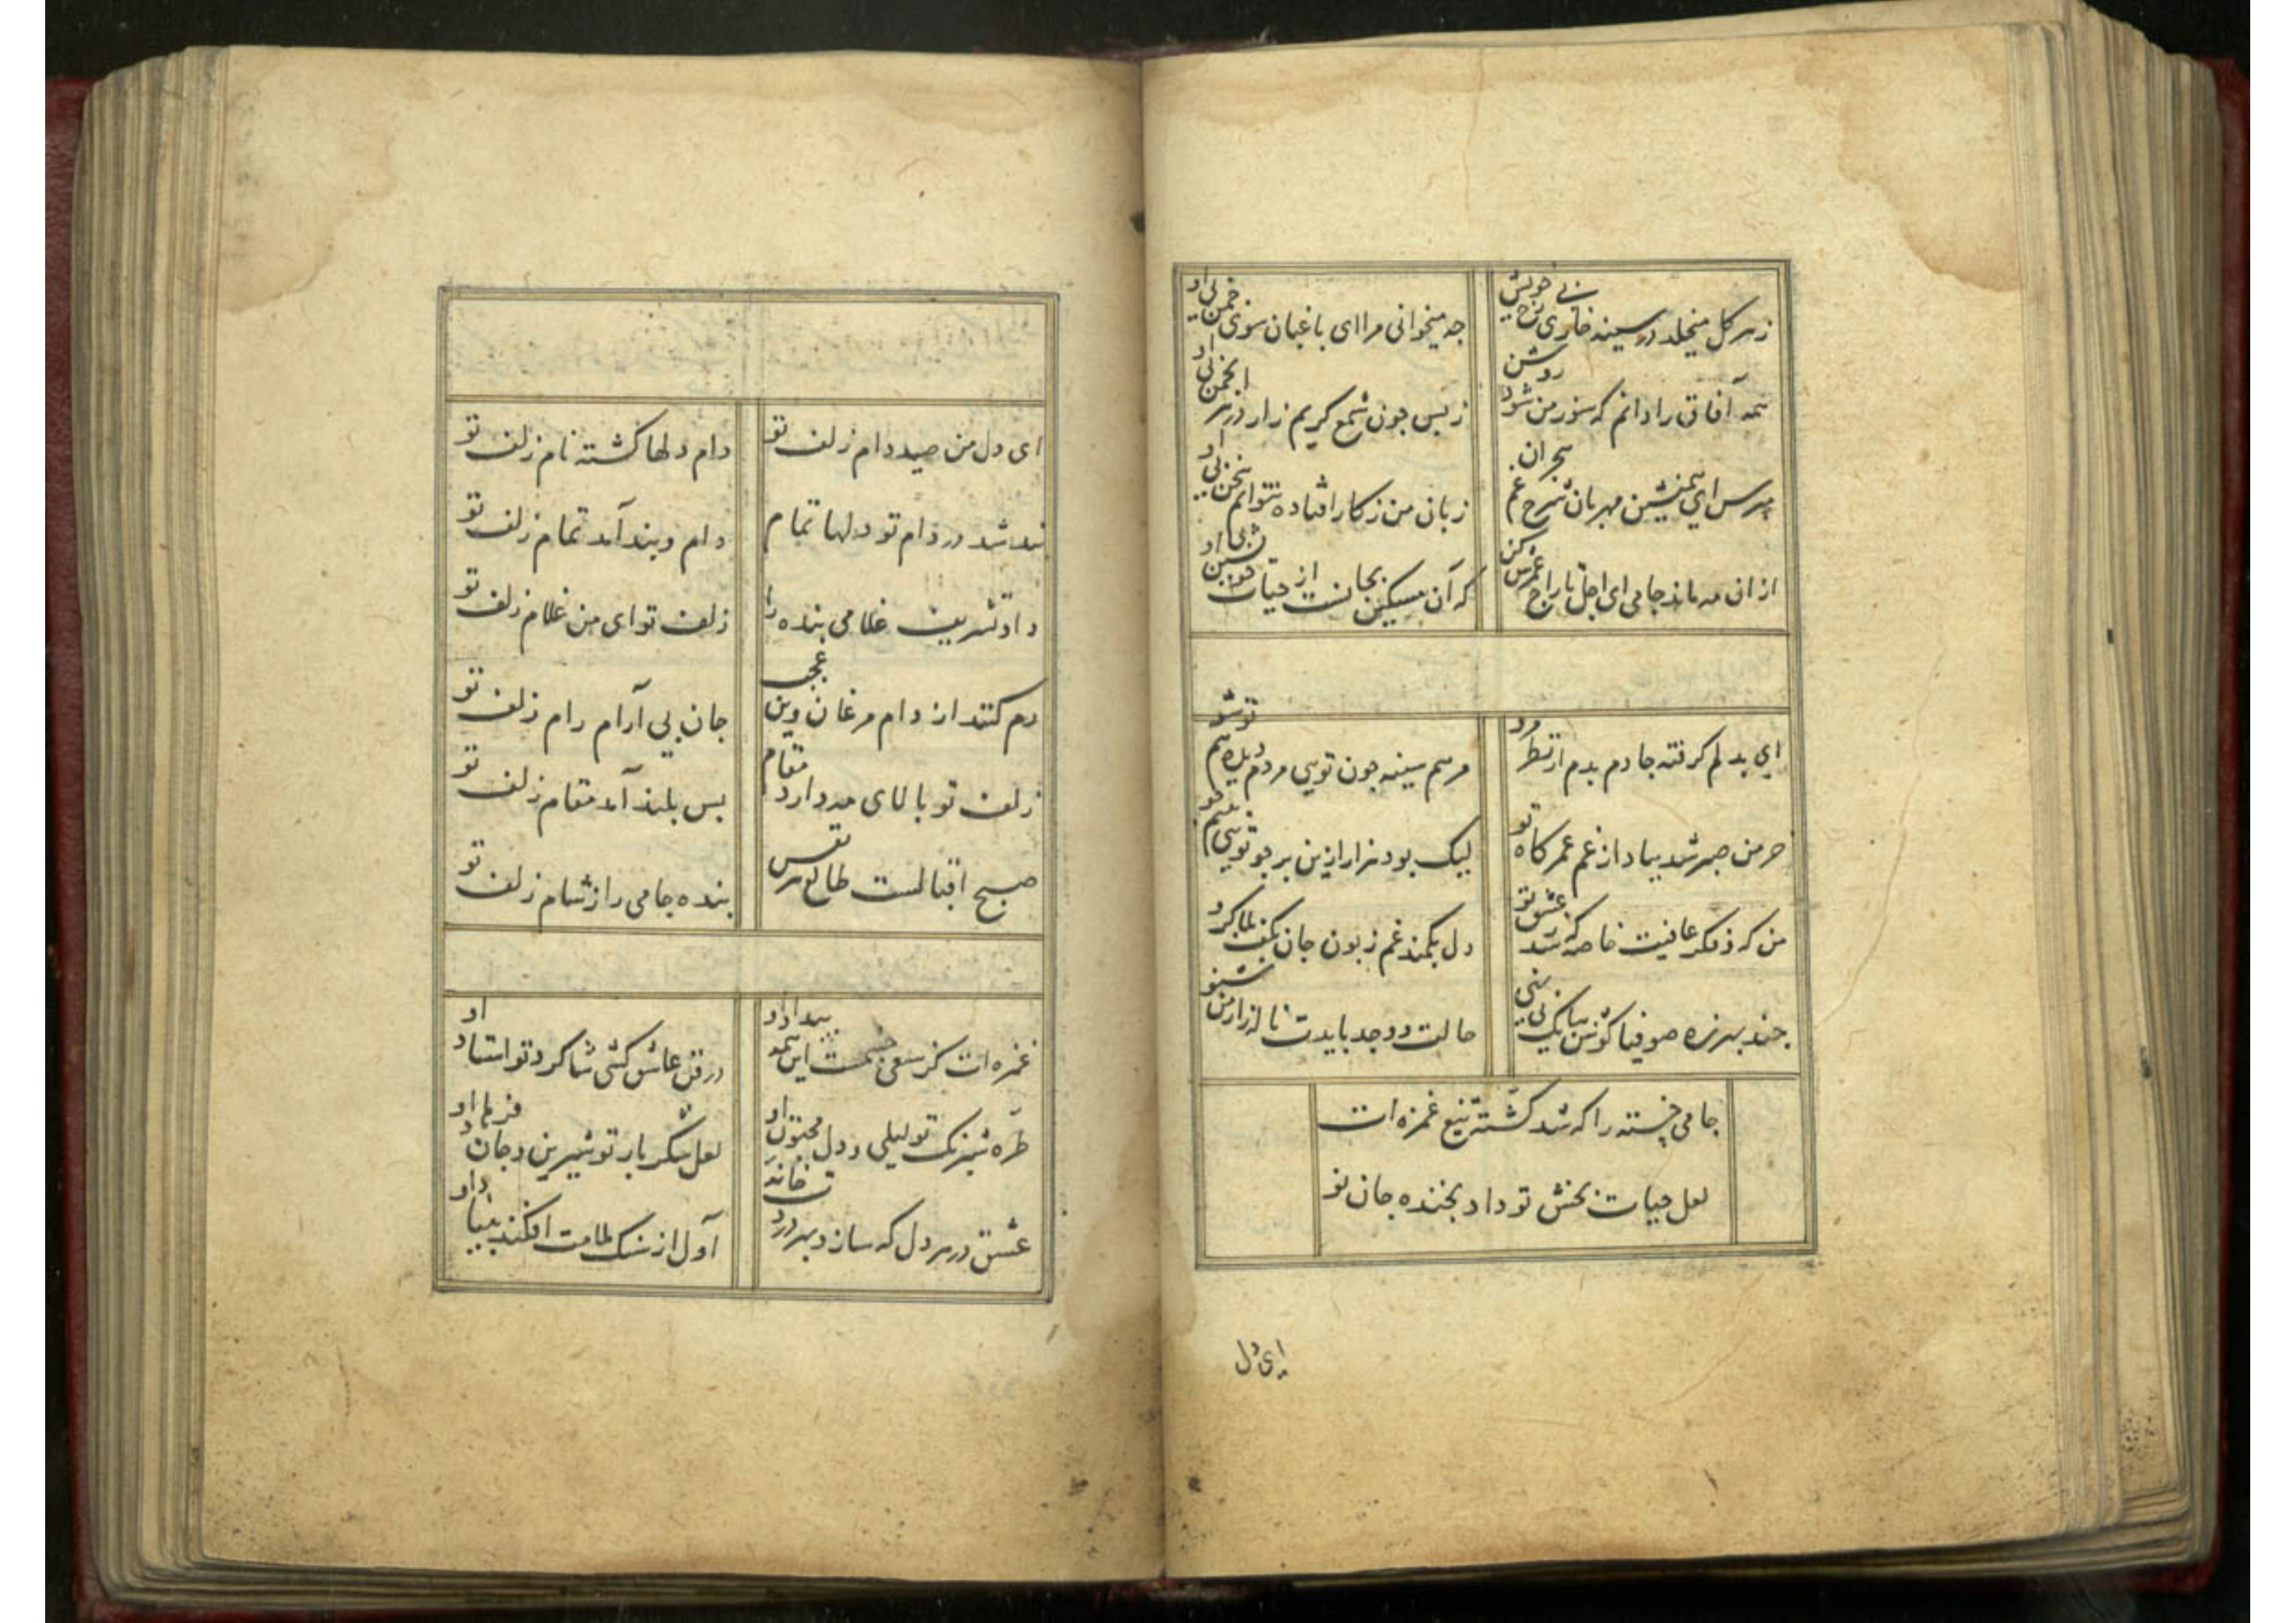 ز هر گل میخلد در سینه خاری بی رخ خویش
چه میخوانی مرا ای باغبان سوی چمن بی او
همه آفاق را دانم که سوز من شود روشن
ز بس چون شمع گریم زار در هر انجمن بی او
مپرس ای همنشین مهربان شرح غم هجران
زبان من ز کار افتاده نتوانم سخن بی او
از ان مه ماند جامی ای اجل تاراج عمرش کن
که آن مسکین بجانست از حیات خویشتن بی او
ای بدلم گرفته جا دم بدم از نظر مرو
مرهم سینه چون تویی مردم دیده هم تو شو
خرمن صبر شد بباد از غم عمر کاه تو
لیک بود هزار ازین بر چو تویی به نیم جو
من که ز فکر عافیت خاصه که شد ز عشق تو
دل بکمند غم زبون جان بکف بلا گرو
چند بهرزه صوفیا گوش ببانگ نی نهی
حالت و وجد بایدت ناله زار من شنو
جامی خسته را که شد کشته تیغ غمزه ات
لعل حیات بخش تو داد بخنده جان نو
ای دل
ای دل من صید دام زلف تو
دام دلها گشته نام زلف تو
بند شد در دام تو دلها تمام
دام و بند آمد تمام زلف تو
داد تشریف غلامی بنده را
زلف تو ای من غلام زلف تو
رم کنند از دام مرغان وین عجب
جان بی آرام رام زلف تو
زلف تو بالای مه دارد مقام
بس بلند آمد مقام زلف تو
صبح اقبالست طالع هر نفس
بنده جامی را ز شام زلف تو
غمزه ات کز سعی چشمست این همه بیداد او
در فن عاشق کشی شاگرد تو استاد او
طره شبرنگ تو لیلی و دل مجنون او
لعل شکر بار تو شیرین و جان فرهاد او
عشق در هر دل که سازد بهر دردت خانه
اول از سنگ ملامت افکند بنیاد او